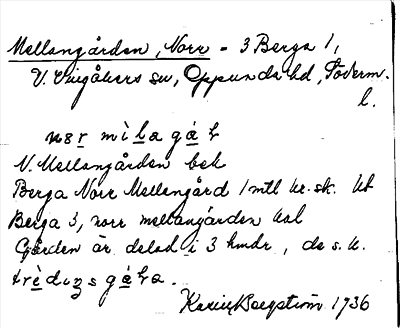 Mellangården, Norr = 3 Berga 1,
V. Vingåkers sn, Oppunda hd, Söderm.
l.
nɷr mìlagå r
N. Mellangården bek
Berga Norr Mellangård 1 mtl kr. sk. kb
Berga 3, norr mellangården hal
Gården är delad i 3 hmdr, de s. k.
trèdɩŋsgå ra.
Karin Bergström 1736